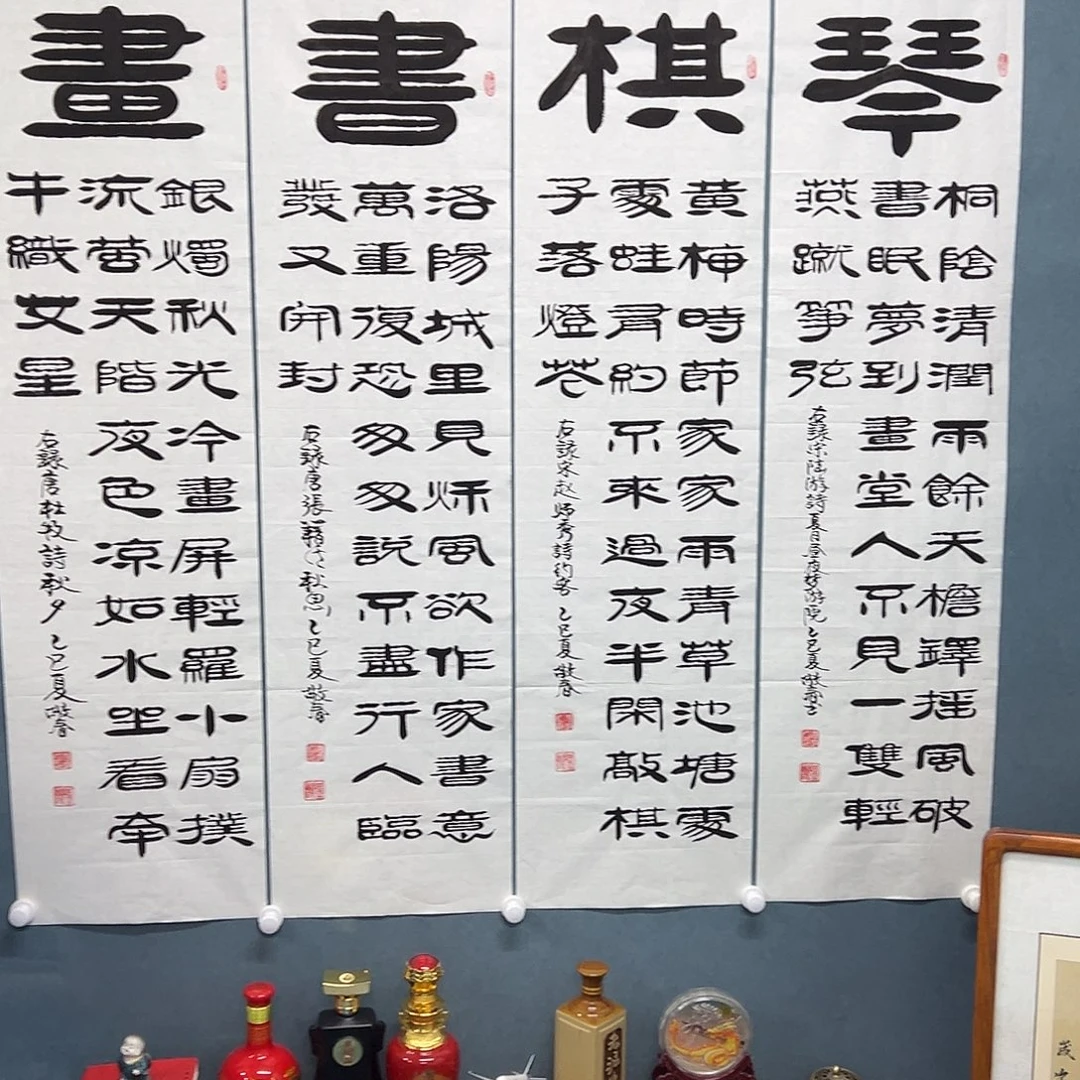 琴
桐陰清潤雨餘天檐鐸摇風破
書眠夢到畫堂人不見一雙輕
燕蹴箏弦
右録宋陸游詩夏日昼夜梦游院 乙巳夏敬春书
棋
黄梅時節家家雨青草池塘處
處蛙有約不來過夜半閑敲棋
子落燈花
右録宋赵师秀詩约客 乙巳夏敬春
書
洛陽城里見秋風欲作家書意
萬重復恐匆匆説不盡行人臨
發又開封
右録唐張籍詩秋思 乙巳夏敬春
畫
銀燭秋光冷畫屏輕羅小扇撲
流螢天階夜色凉如水坐看牽
牛織女星
右録唐杜牧詩秋夕 乙巳夏敬春